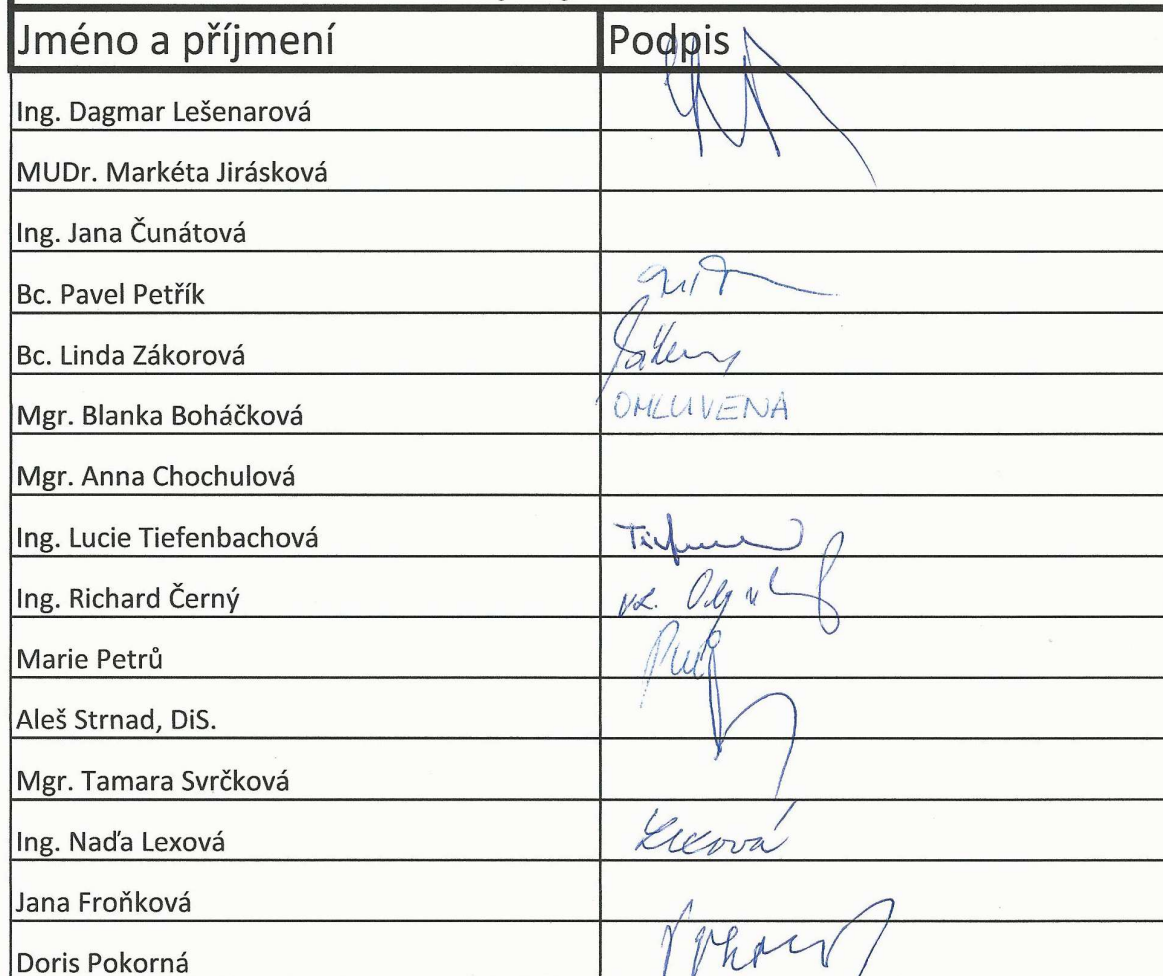 Jméno a příjmení Podpis
Ing. Dagmar Lešenarová
MUDr. Markéta Jirásková
Ing. Jana Čunátová
Bc. Pavel Petřík
Bc. Linda Zákorová
Mgr. Blanka Boháčková OMLUVENA
Mgr. Anna Chochulová
Ing. Lucie Tiefenbachová
Ing. Richard Černý
Marie Petrů
Aleš Strnad, DiS.
Mgr. Tamara Svrčková
Ing. Naďa Lexová Lexová
Jana Froňková
Doris Pokorná